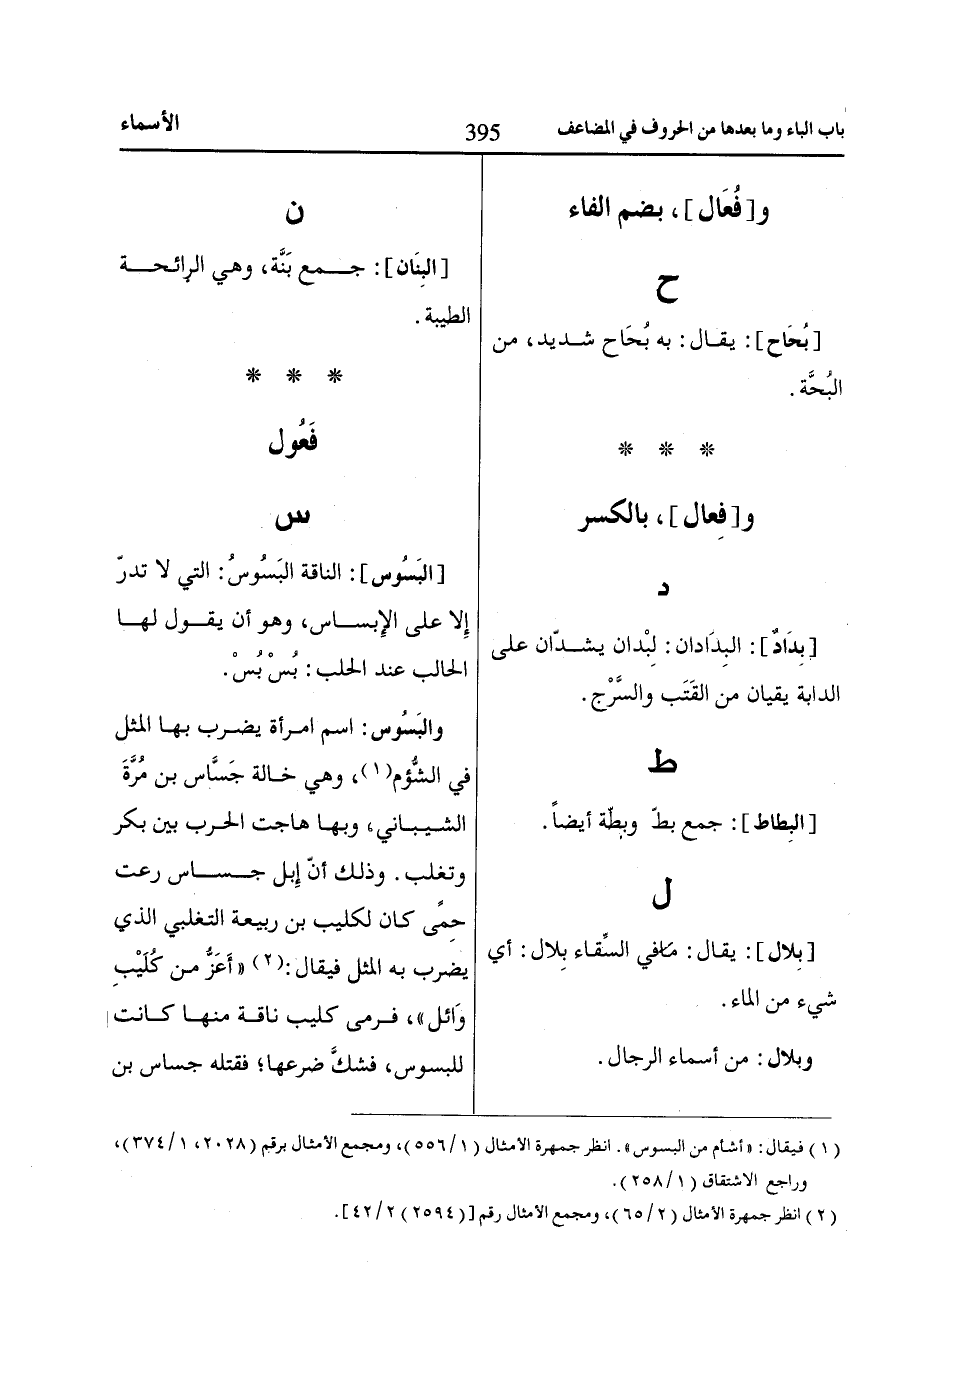 باب الباء وما بعدها من الحروف في المضاعف
395
الأسماء
و[فُعَال]، بضم الفاء
ح
[بُحَاح]: يقال: به بُحَاح شديد، من
البُحَّة.
* * *
و[فِعال]، بالكسر
د
[بِدَادٌ]: البِدَادان: لِبْدان يشدّان على
الدابة يقيان من القَتَب والسَّرْج.
ط
[البِطاط]: جمع بطّ وبطّة أيضاً.
ل
[بِلال]: يقال: مَافي السِّقاء بِلال: أي
شيء من الماء.
وبلال: من أسماء الرجال.
ن
[البِنَان]: جمع بَنَّة، وهي الرائحة
الطيبة.
* * *
فَعُول
س
[البَسُوس]: الناقة البَسُوسُ: التي لا تدرّ
إلا على الإبساس، وهو أن يقول لها
الحالب عند الحلب: بُسْ بُسْ.
والبَسُوس: اسم امرأة يضرب بها المثل
في الشُّؤم(١)، وهي خالة جَسَّاس بن مُرَّةَ
الشيباني، وبها هاجت الحرب بين بكر
وتغلب. وذلك أنّ إبل جساس رعت
حِمًى كان لكليب بن ربيعة التغلبي الذي
يضرب به المثل فيقال:(٢) «أَعَزُّ من كُلَيْبِ
وَائل»، فرمى كليب ناقة منها كانت
للبسوس، فشكَّ ضرعها؛ فقتله جساس بن
(١) فيقال: «أشأم من البسوس». انظر جمهرة الأمثال (٥٥٦/١)، ومجمع الأمثال برقم (٢٠٢٨، ٣٧٤/١)،
وراجع الاشتقاق (٢٥٨/١).
(٢) انظر جمهرة الأمثال (٦٥/٢)، ومجمع الأمثال رقم [(٢٥٩٤) ٤٢/٢].